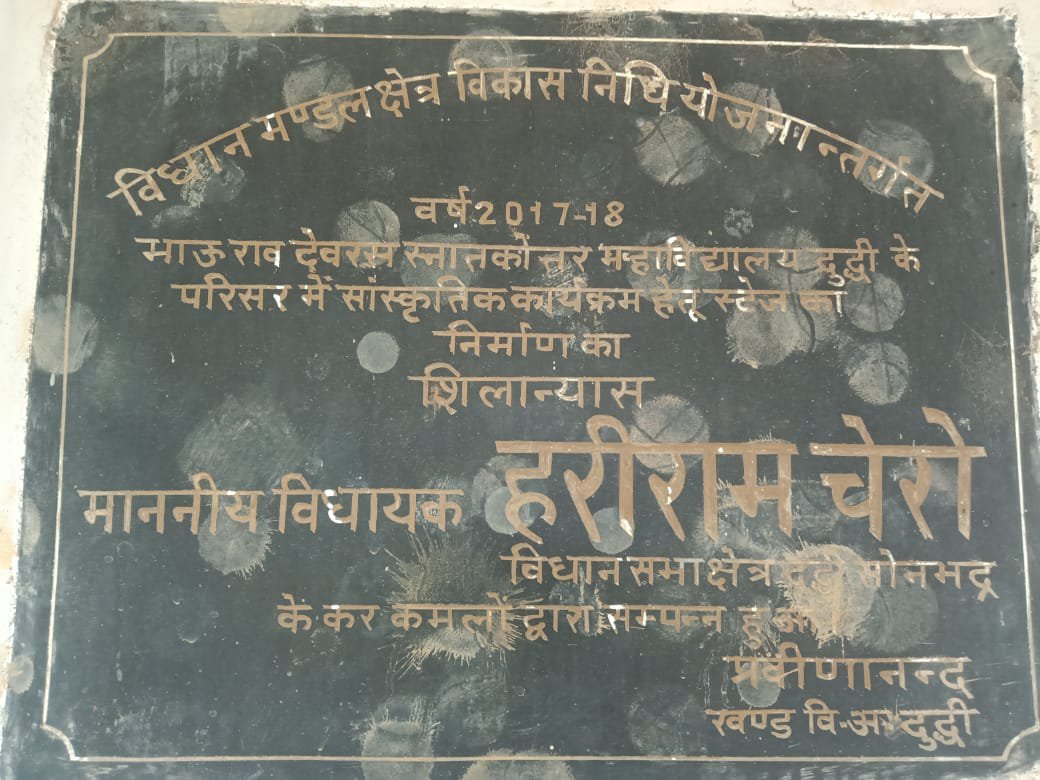 विधान मण्डल क्षेत्र विकास निधि योजनान्तर्गत
वर्ष 2017-18
भाऊ राव देवरस स्नातकोत्तर महाविद्यालय दुद्धी के
परिसर में सांस्कृतिक कार्यक्रम हेतू स्टेज का
निर्माण का
शिलान्यास
माननीय विधायक हरीराम चेरो
विधान सभा क्षेत्र दुद्धी सोनभद्र
के कर कमलों द्वारा सम्पन्न हुआ।
प्रवीणानन्द
खण्ड वि-अ० दुद्धी